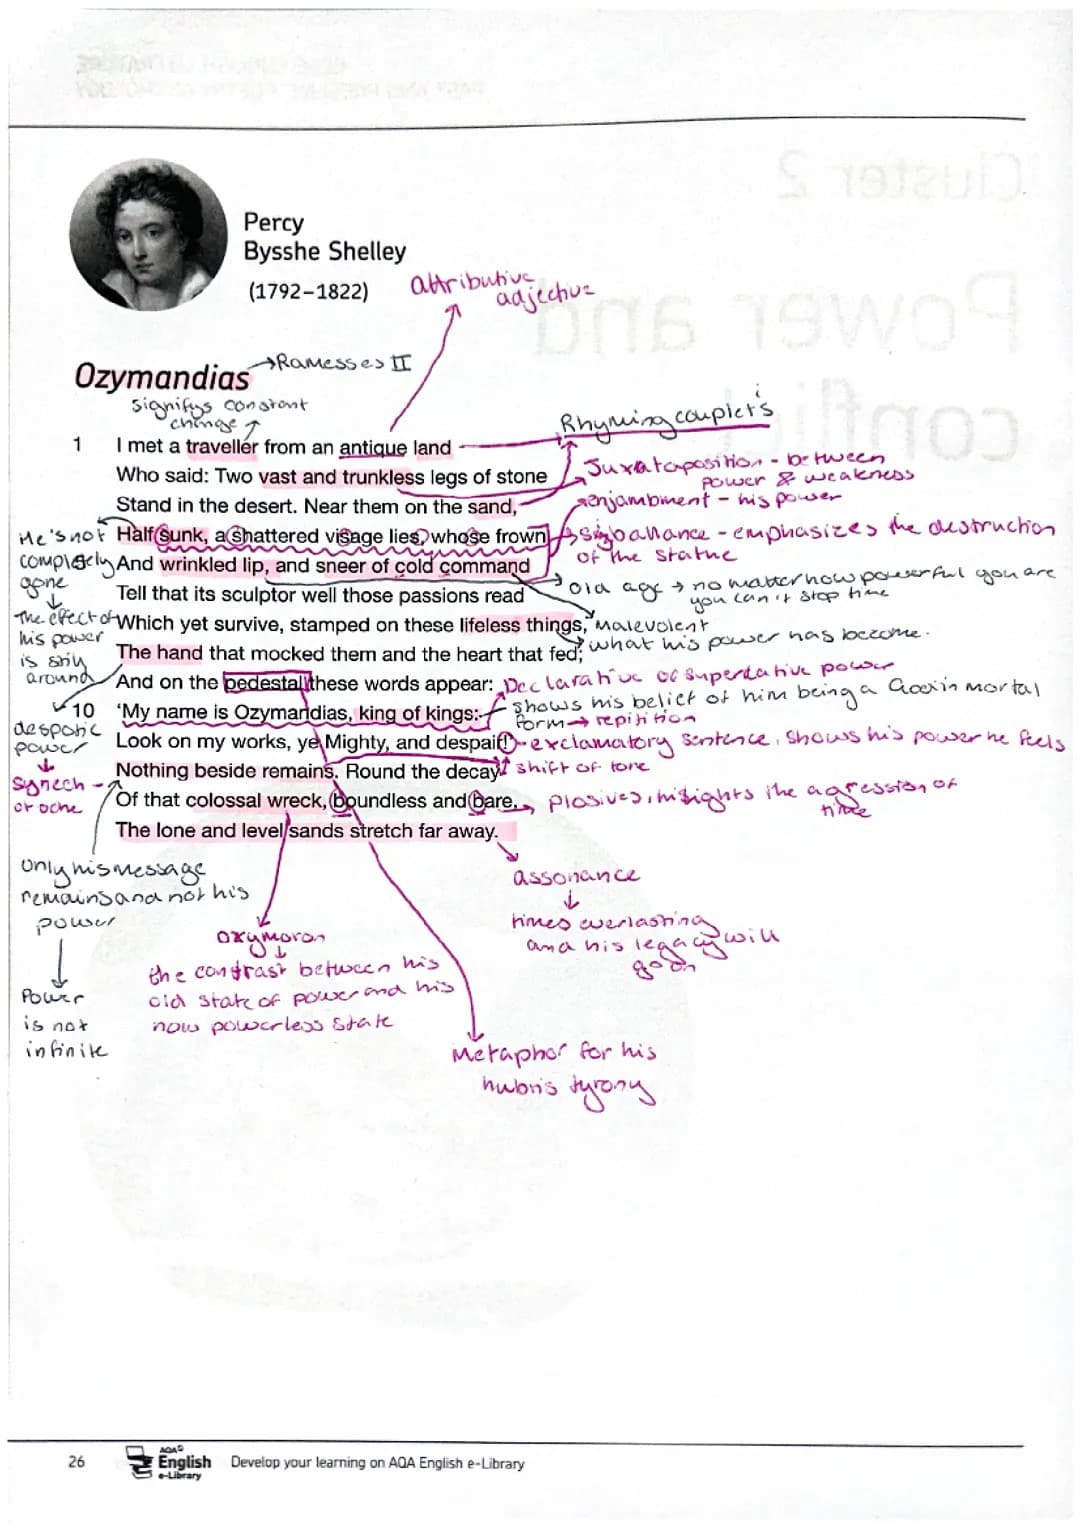 Percy
Bysshe Shelley
(1792–1822)
attributive
adjective
Ozymandias
→Ramesses II
signifys constant
change
Rhyming couplets
1 I met a traveller from an antique land
Who said: Two vast and trunkless legs of stone
Juxtaposition - between
power & weakness
Stand in the desert. Near them on the sand,
enjambment - his power
He's not
completely
gone
Half sunk, a shattered visage lies, whose frown
siballance - emphasizes the destruction
of the statue
And wrinkled lip, and sneer of cold command
old age → no matter how powerful you are
you can't stop time
Tell that its sculptor well those passions read
The effect of
his power
is still
around
Which yet survive, stamped on these lifeless things,
Malevolent
what his power has become.
The hand that mocked them and the heart that fed;
And on the pedestal these words appear:
Declarative of superlative power
shows his belief of him being a God in mortal
form → repitition
10 ‘My name is Ozymandias, king of kings:
despotic
power
Look on my works, ye Mighty, and despair!
- exclamatory sentence, shows his power he feels
shift of tone
Nothing beside remains. Round the decay
synech-
dochne
Of that colossal wreck, boundless and bare,
plosives, hilights the agression of
time
The lone and level sands stretch far away.
only his message
remains and not his
power
Power
is not
infinite
oxymoron
the contrast between his
old state of power and his
now powerless state
assonance
times everlasting
and his legacy will
go on
Metaphor for his
hubris tyrony
26
AQA
English
e-Library
Develop your learning on AQA English e-Library